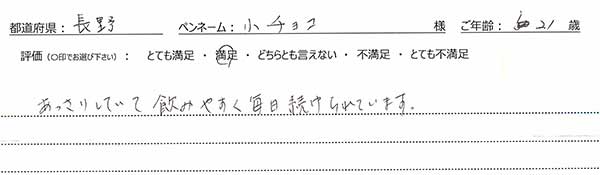 都道府県: 長野 ペンネーム: 小チョコ 様 ご年齢: 21 歳
評価 (○印でお選び下さい) : とても満足 ・ 満足 ・ どちらとも言えない ・ 不満足 ・ とても不満足
あっさりしていて飲みやすく毎日続けられています。